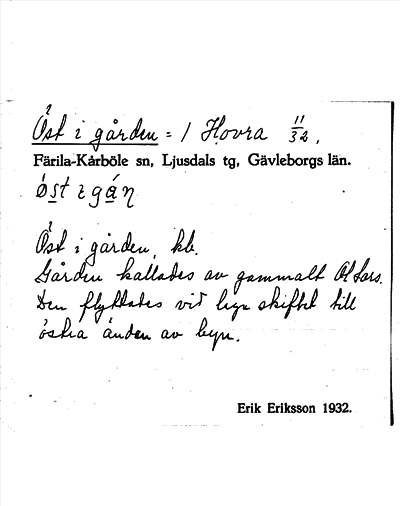 Öst i gården = / Hovra 11/32,
Färila-Kårböle sn, Ljusdals tg, Gävleborgs län.
øst i gáƞ
Öst i gården, kb.
Gården kallades av gammalt Ol Lars.
Den flyttades vid laga skiftet till
östra ändan av byn.
Erik Eriksson 1932.